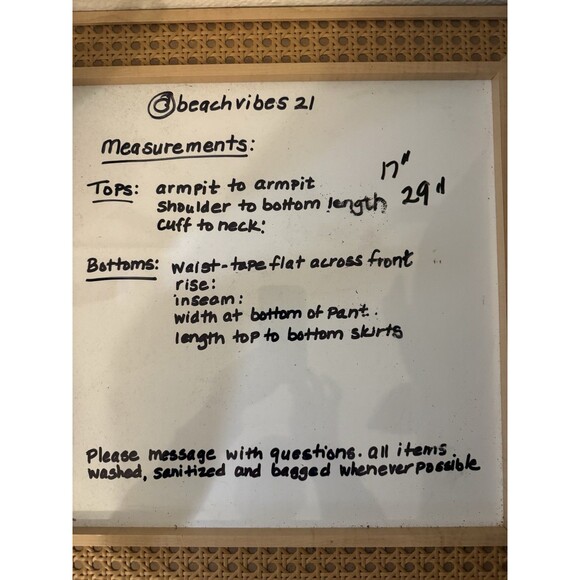 @beachvibes 21
Measurements:
Tops: armpit to armpit 17"
shoulder to bottom length 29"
cuff to neck:
Bottoms: waist-tape flat across front
rise:
inseam:
width at bottom of pant.
length top to bottom skirts
Please message with questions. all items
washed, sanitized and bagged whenever possible